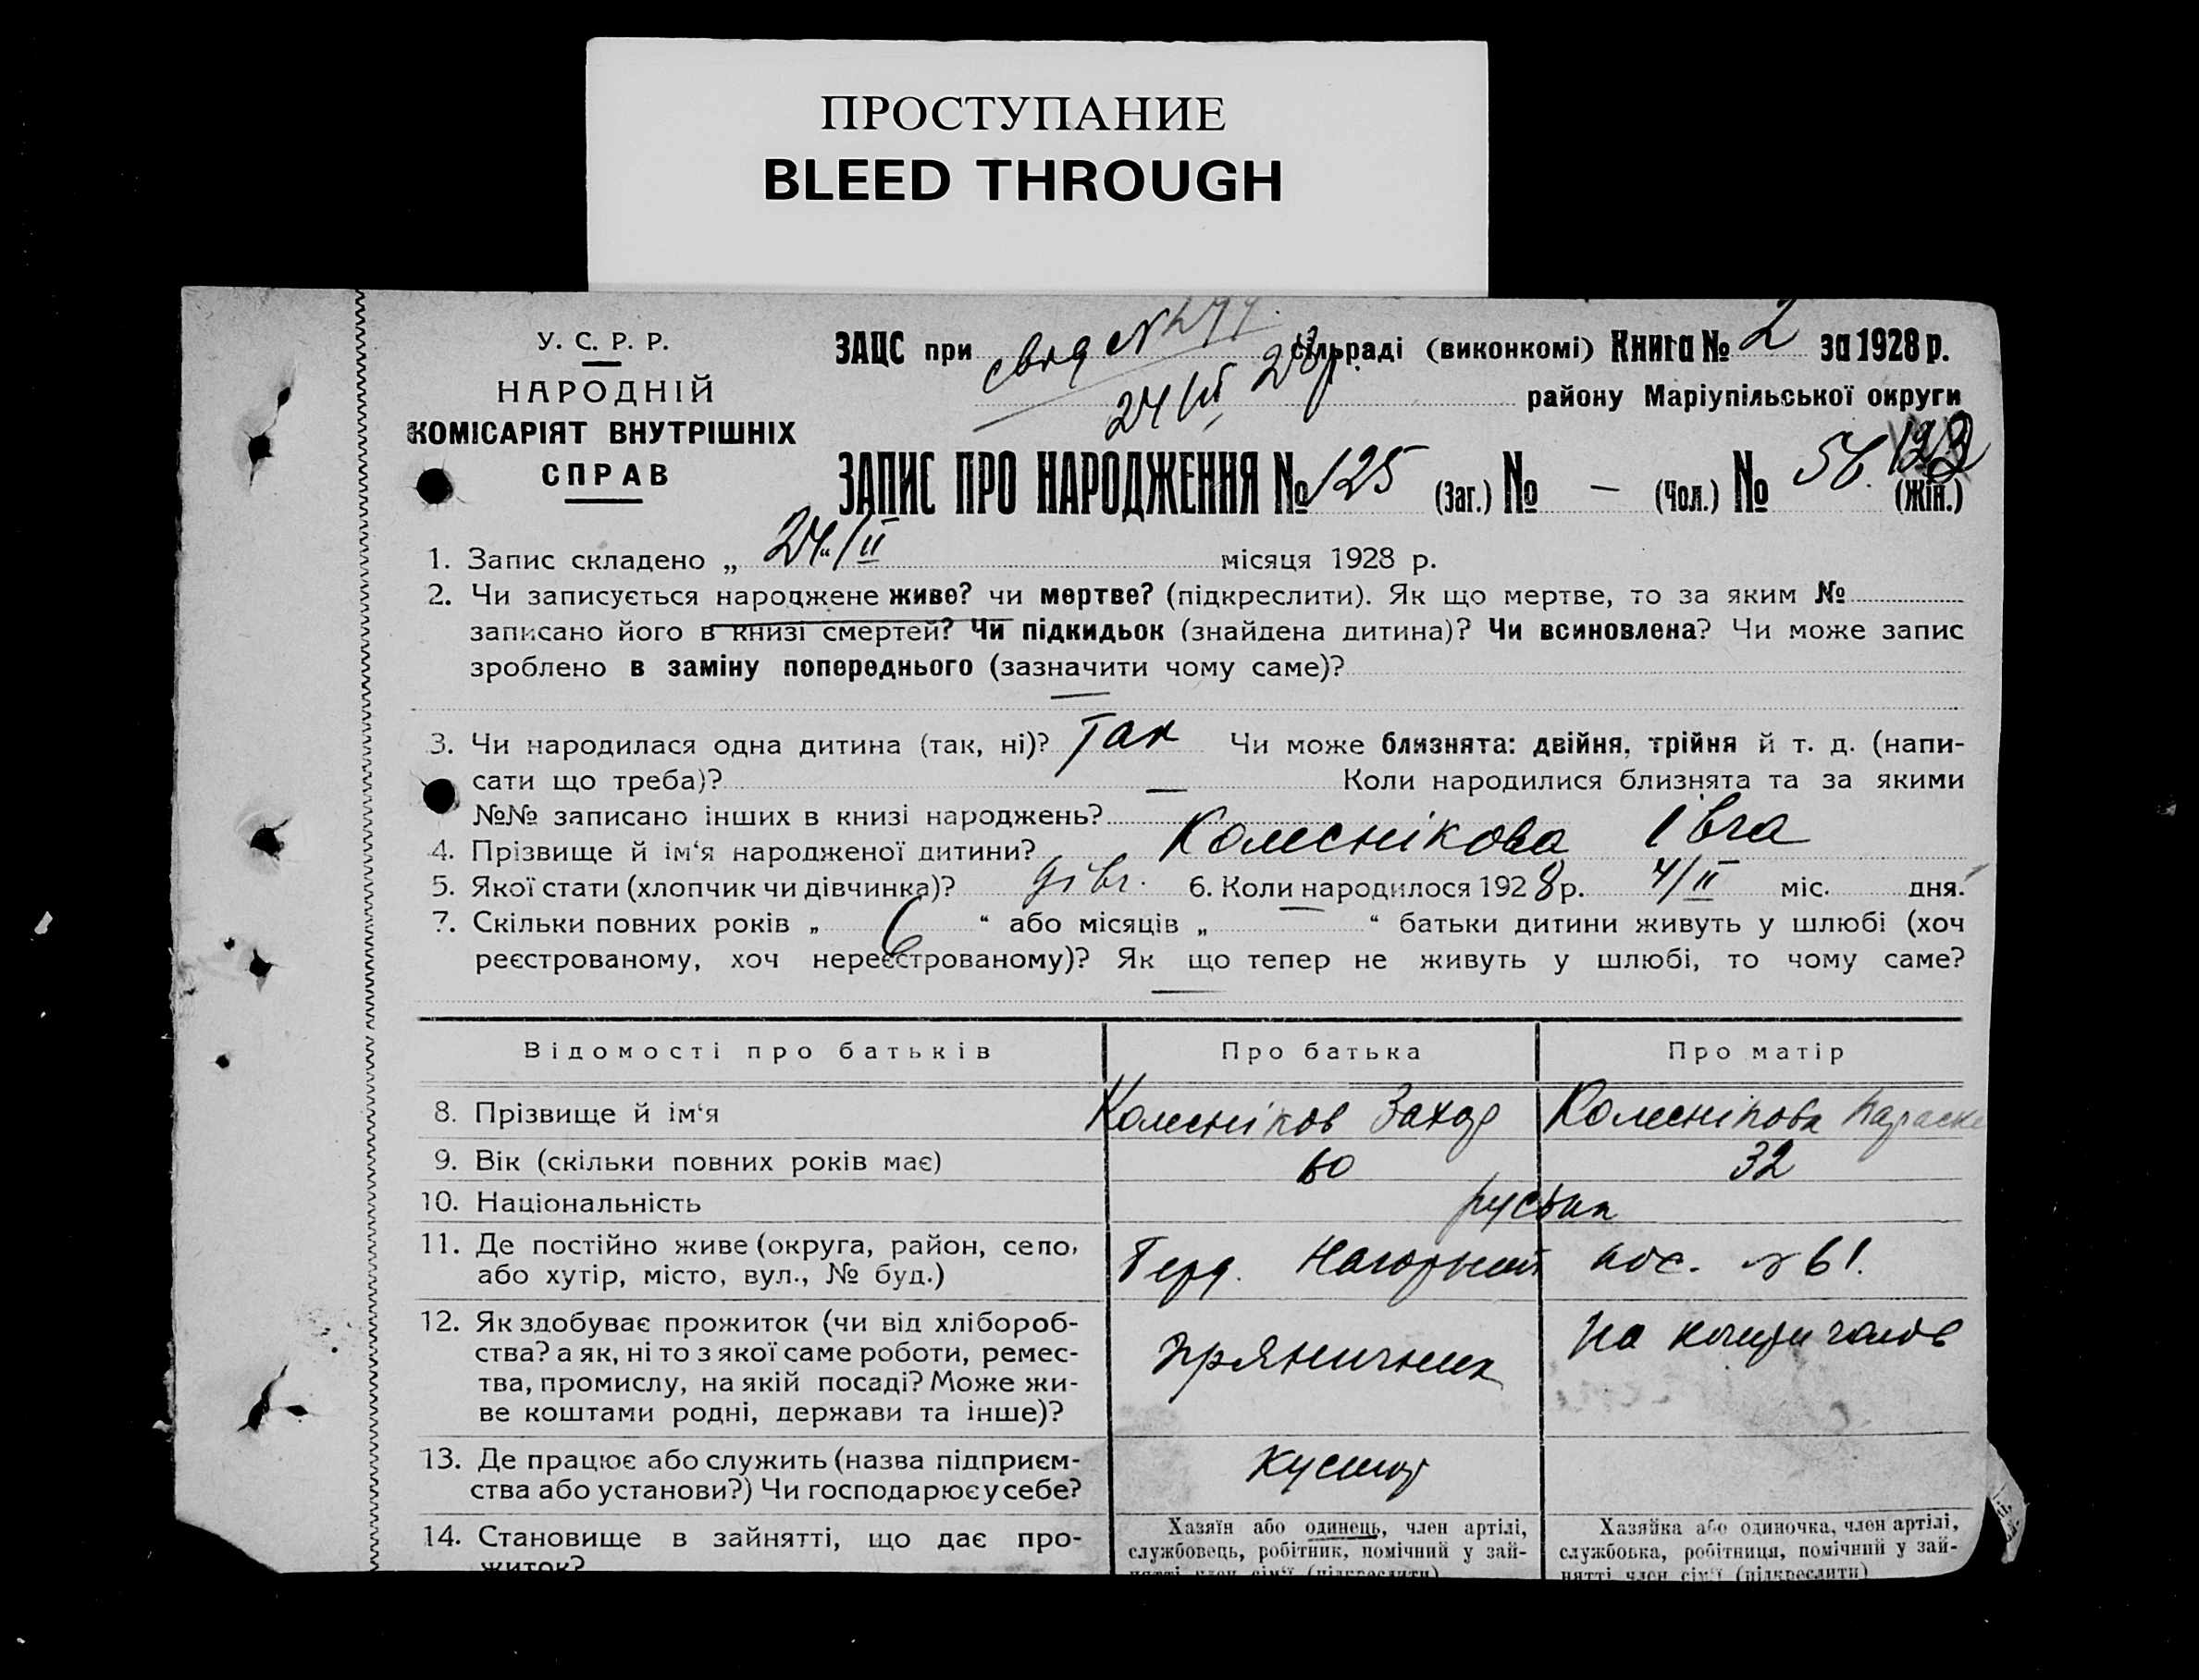 ПРОСТУПАНИЕ
BLEED THROUGH
У. С. Р. Р.
НАРОДНІЙ
КОМІСАРІЯТ ВНУТРІШНІХ
СПРАВ
ЗАЦС при сільраді (виконкомі) Книга № 2 за 1928 р.
24/II 28р.
району Маріупільської округи
ЗАПИС ПРО НАРОДЖЕННЯ № 125 (Заг.) № — (Чол.) № (Жін.)
1. Запис складено „ 24 “ / II місяця 1928 р.
2. Чи записується народжене живе? чи мертве? (підкреслити). Як що мертве, то за яким №
записано його в книзі смертей? Чи підкидьок (знайдена дитина)? Чи всиновлена? Чи може запис
зроблено в заміну попереднього (зазначити чому саме)?
—
3. Чи народилася одна дитина (так, ні)? Так Чи може близнята: двійня, трійня й т. д. (напи-
сати що треба)? — Коли народилися близнята та за якими
№№ записано інших в книзі народжень?
4. Прізвище й ім‘я народженої дитини? Колеснікова Івга
5. Якої стати (хлопчик чи дівчинка)? дівч. 6. Коли народилося 1928 р. 4/II міс. дня.
7. Скільки повних років „ 6 “ або місяців „ — “ батьки дитини живуть у шлюбі (хоч
реєстрованому, хоч нереєстрованому)? Як що тепер не живуть у шлюбі, то чому саме?
—
Відомості про батьків Про батька Про матір
8. Прізвище й ім‘я Колесніков Захар Колеснікова Параск
9. Вік (скільки повних років має) 60 32
10. Національність руська
11. Де постійно живе (округа, район, село,
або хутір, місто, вул., № буд.) Нагорный пос. № 61.
12. Як здобуває прожиток (чи від хлібороб-
ства? а як, ні то з якої саме роботи, ремес-
тва, промислу, на якій посаді? Може жи-
ве коштами родні, держави та інше)?
пряничник
13. Де працює або служить (назва підприєм-
ства або установи?) Чи господарює у себе?
кустар
14. Становище в зайнятті, що дає про-
житок?
Хазяїн або одинець, член артілі,
службовець, робітник, помічний у зай-
нятті член сім‘ї (підкреслити)
Хазяйка або одиночка, член артілі,
службовка, робітниця, помічний у зай-
нятті член сім‘ї (підкреслити)